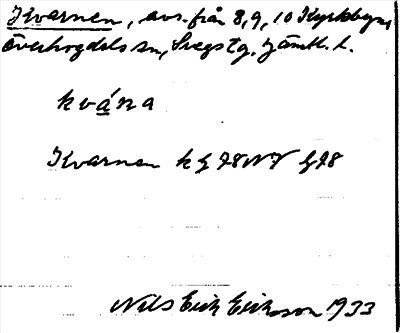 Kvarnen, avs. från 8, 9, 10 Kyrkbyn,
Överhogdals sn, Svegs tg. Jämtl. l.
kvána
Kvarnen
Nils Erik Eriksson 1933